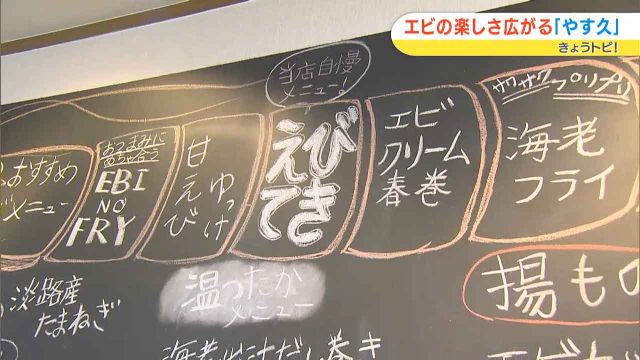 エビの楽しさ広がる「やす久」
きょうトピ!
当店自慢
メニュー。
おすすめ
メニュー
おつまみに
めちゃ合う
EBI
NO
FRY
甘えび
ゆっけ
えび
てき
エビ
クリーム
春巻
サクサクプリプリ
海老
フライ
淡路産
たまねぎ
温ったか
メニュー
揚もの
海老出汁だし巻き